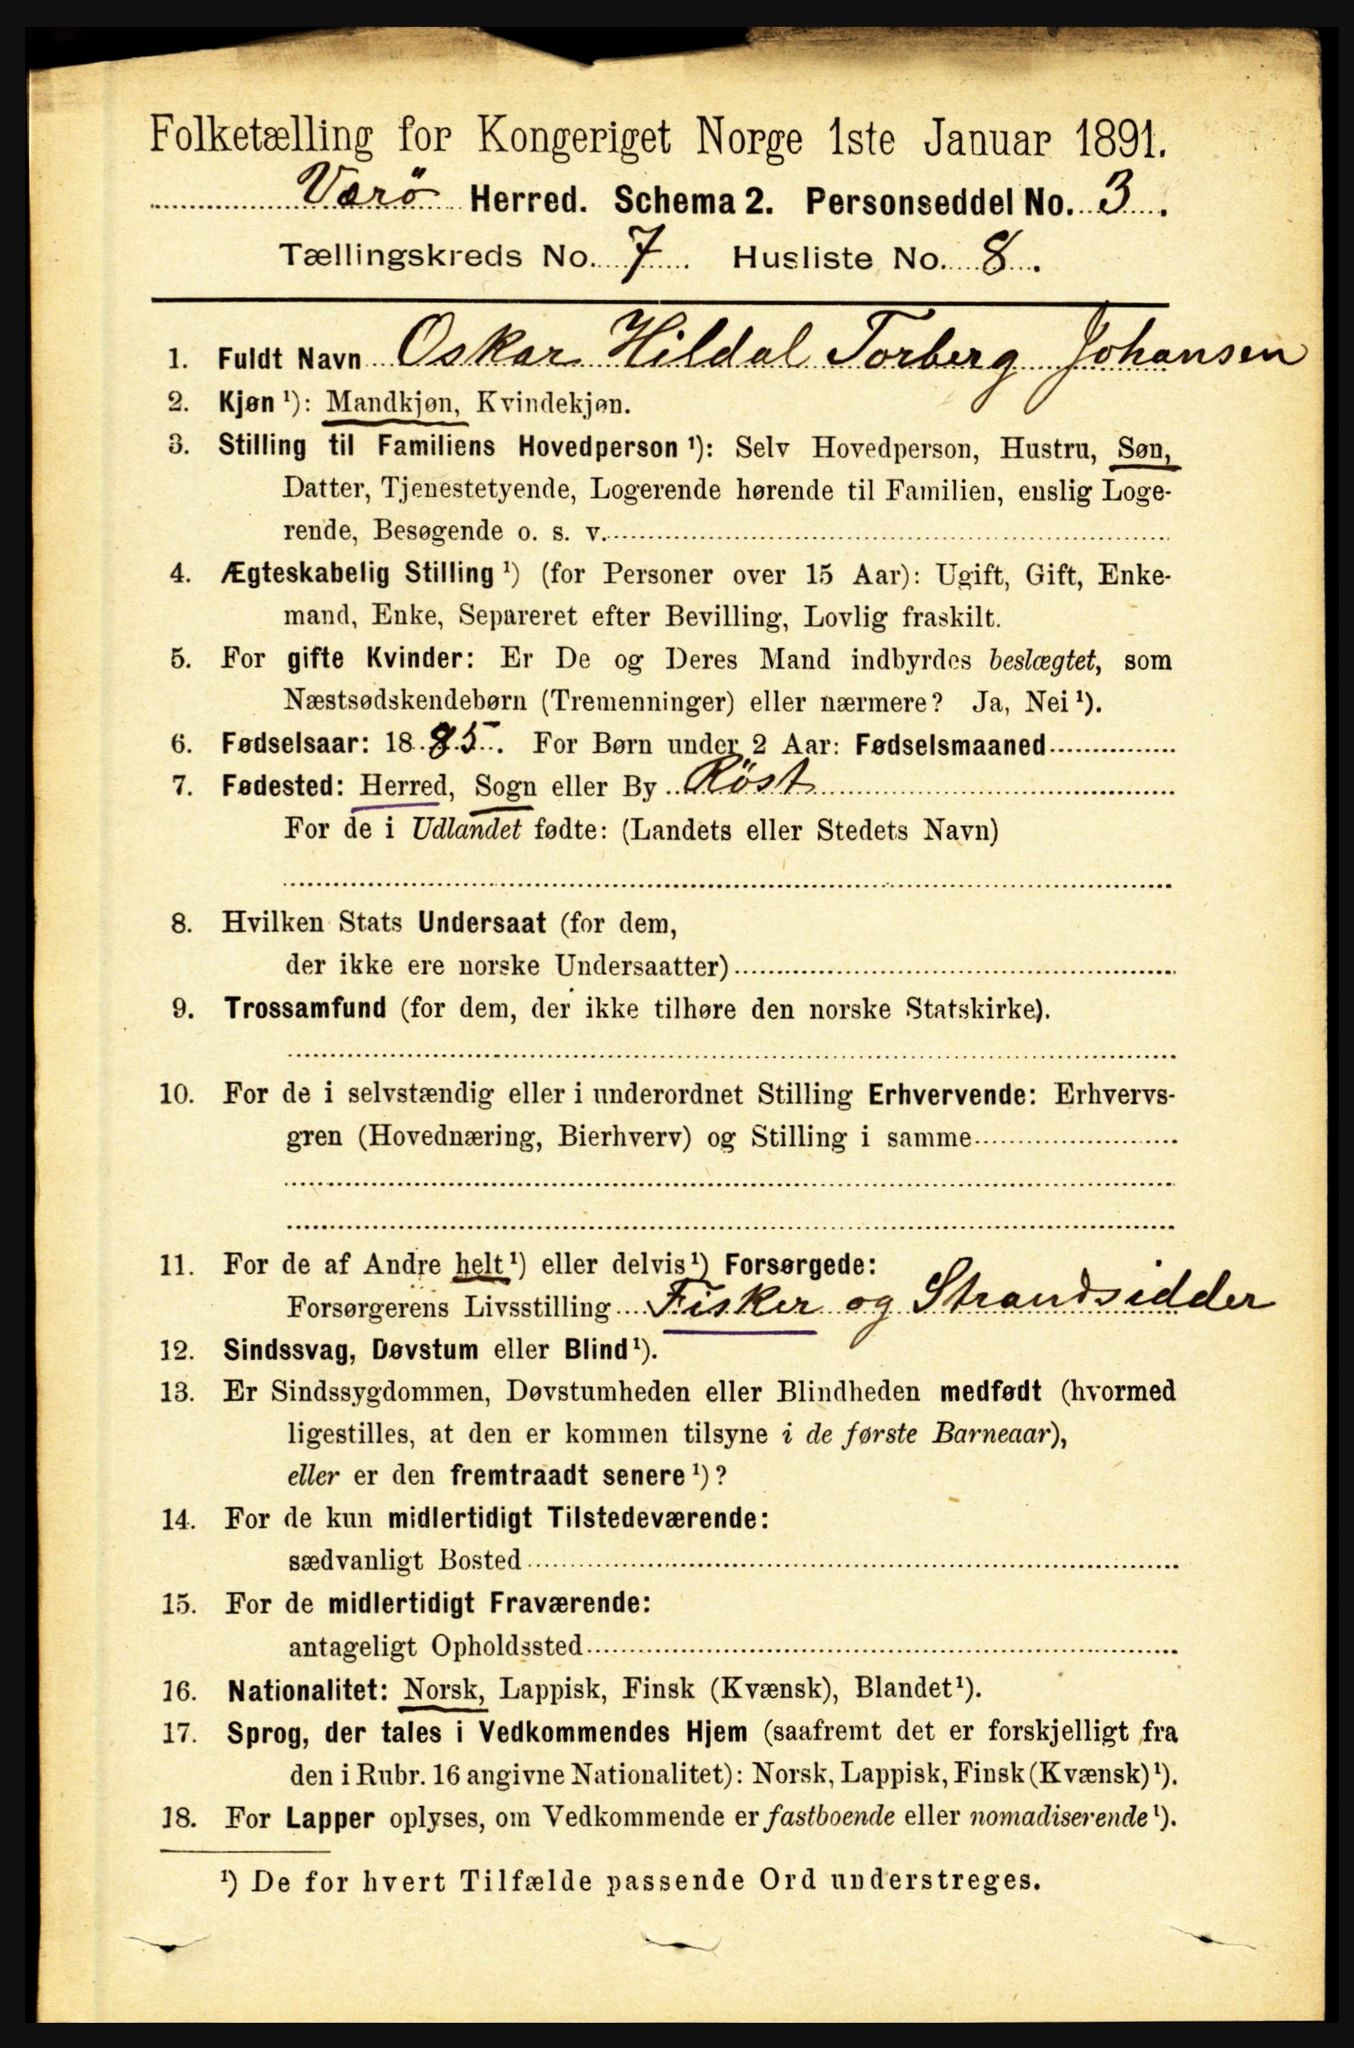 Folketælling for Kongeriget Norge 1ste Januar 1891.
Værö Herred. Schema 2. Personseddel No. 3.
Tællingskreds No. 7 Husliste No. 8.
1. Fuldt Navn Oskar Hildal Torberg Johansen
2. Kjøn ¹): Mandkjøn, Kvindekjøn.
3. Stilling til Familiens Hovedperson ¹): Selv Hovedperson, Hustru, Søn,
Datter, Tjenestetyende, Logerende hørende til Familien, enslig Loge-
rende, Besøgende o. s. v.
4. Ægteskabelig Stilling ¹) (for Personer over 15 Aar): Ugift, Gift, Enke-
mand, Enke, Separeret efter Bevilling, Lovlig fraskilt.
5. For gifte Kvinder: Er De og Deres Mand indbyrdes beslægtet, som
Næstsødskendebørn (Tremenninger) eller nærmere? Ja, Nei ¹).
6. Fødselsaar: 1885. For Børn under 2 Aar: Fødselsmaaned
7. Fødested: Herred, Sogn eller By Röst
For de i Udlandet fødte: (Landets eller Stedets Navn)
8. Hvilken Stats Undersaat (for dem,
der ikke ere norske Undersaatter)
9. Trossamfund (for dem, der ikke tilhøre den norske Statskirke).
10. For de i selvstændig eller i underordnet Stilling Erhvervende: Erhvervs-
gren (Hovednæring, Bierhverv) og Stilling i samme
11. For de af Andre helt ¹) eller delvis ¹) Forsørgede:
Forsørgerens Livsstilling Fisker og Strandsidder
12. Sindssvag, Døvstum eller Blind ¹).
13. Er Sindssygdommen, Døvstumheden eller Blindheden medfødt (hvormed
ligestilles, at den er kommen tilsyne i de første Barneaar),
eller er den fremtraadt senere ¹)?
14. For de kun midlertidigt Tilstedeværende:
sædvanligt Bosted
15. For de midlertidigt Fraværende:
antageligt Opholdssted
16. Nationalitet: Norsk, Lappisk, Finsk (Kvænsk), Blandet ¹).
17. Sprog, der tales i Vedkommendes Hjem (saafremt det er forskjelligt fra
den i Rubr. 16 angivne Nationalitet): Norsk, Lappisk, Finsk (Kvænsk) ¹).
18. For Lapper oplyses, om Vedkommende er fastboende eller nomadiserende ¹).
¹) De for hvert Tilfælde passende Ord understreges.